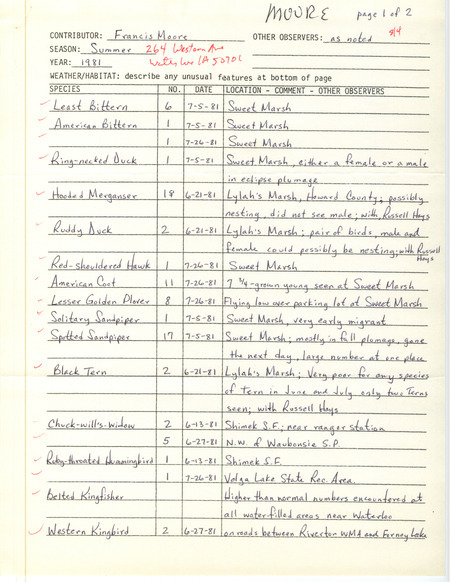 MOORE page 1 of 2
CONTRIBUTOR: Francis Moore OTHER OBSERVERS: as noted
8/4
SEASON: Summer 264 Western Ave
YEAR: 1981 Waterloo IA 50701
WEATHER/HABITAT: describe any unusual features at bottom of page
SPECIES NO. DATE LOCATION - COMMENT - OTHER OBSERVERS
Least Bittern 6 7-5-81 Sweet Marsh
American Bittern 1 7-5-81 Sweet Marsh
1 7-26-81 Sweet Marsh
Ring-necked Duck 1 7-5-81 Sweet Marsh, either a female or a male
in eclipse plumage
Hooded Merganser 18 6-21-81 Lylah's Marsh, Howard County; possibly
nesting, did not see male; with Russell Hays
Ruddy Duck 2 6-21-81 Lylah's Marsh; pair of birds, male and
female could possibly be nesting; with Russell
Hays
Red-shouldered Hawk 1 7-26-81 Sweet Marsh
American Coot 11 7-26-81 7 3/4-grown young seen at Sweet Marsh
Lesser Golden Plover 8 7-26-81 Flying low over parking lot at Sweet Marsh
Solitary Sandpiper 1 7-5-81 Sweet Marsh, very early migrant
Spotted Sandpiper 17 7-5-81 Sweet Marsh; mostly in full plumage, gone
the next day, large number at one place
Black Tern 2 6-21-81 Lylah's Marsh; Very poor for any species
of Tern in June and July only two Terns
seen; with Russell Hays
Chuck-will's-Widow 2 6-13-81 Shimek S.F.; near ranger station
5 6-27-81 N.W. of Waubonsie S.P.
Ruby-throated Hummingbird 1 6-13-81 Shimek S.F.
1 7-26-81 Volga Lake State Rec. Area
Belted Kingfisher Higher than normal numbers encountered at
all water-filled areas near Waterloo
Western Kingbird 2 6-27-81 on roads between Riverton WMA and Forney Lake